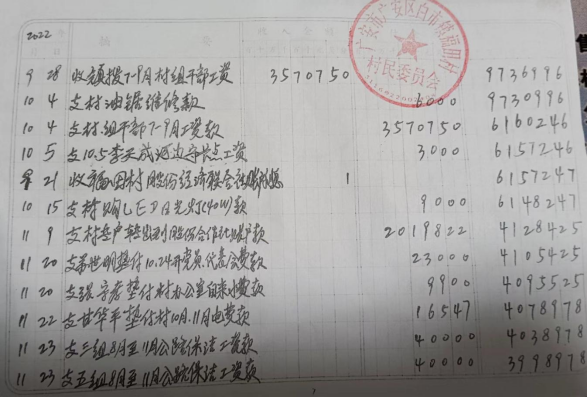 2022
9 28 收预拨7-9月村组干部工资 3570750 9736996
10 4 支村油锯维修款 6000 9730996
10 4 支村组干部7-9月工资款 3570750 6160246
10 5 支10.5李天成 守卡点工资 3000 6157246
21 收 村股份经济联合社 1 6157247
10 15 支村购LED日光灯(40W)款 9000 6148247
11 9 支村 户转 到股份合作社 款 2019822 4128425
11 20 支 世明垫付10.24开党员、代表会费款 23000 4105425
11 20 支 垫付村办公室自来水费款 9900 4095525
11 22 支甘华平垫付村10月、11月电费款 16547 4078978
11 23 支三组8月至11月公路保洁工资款 40000 4038978
11 23 支五组8月至11月公路保洁工资款 40000 3998978
广安市广安区白市镇 村
村民委员会